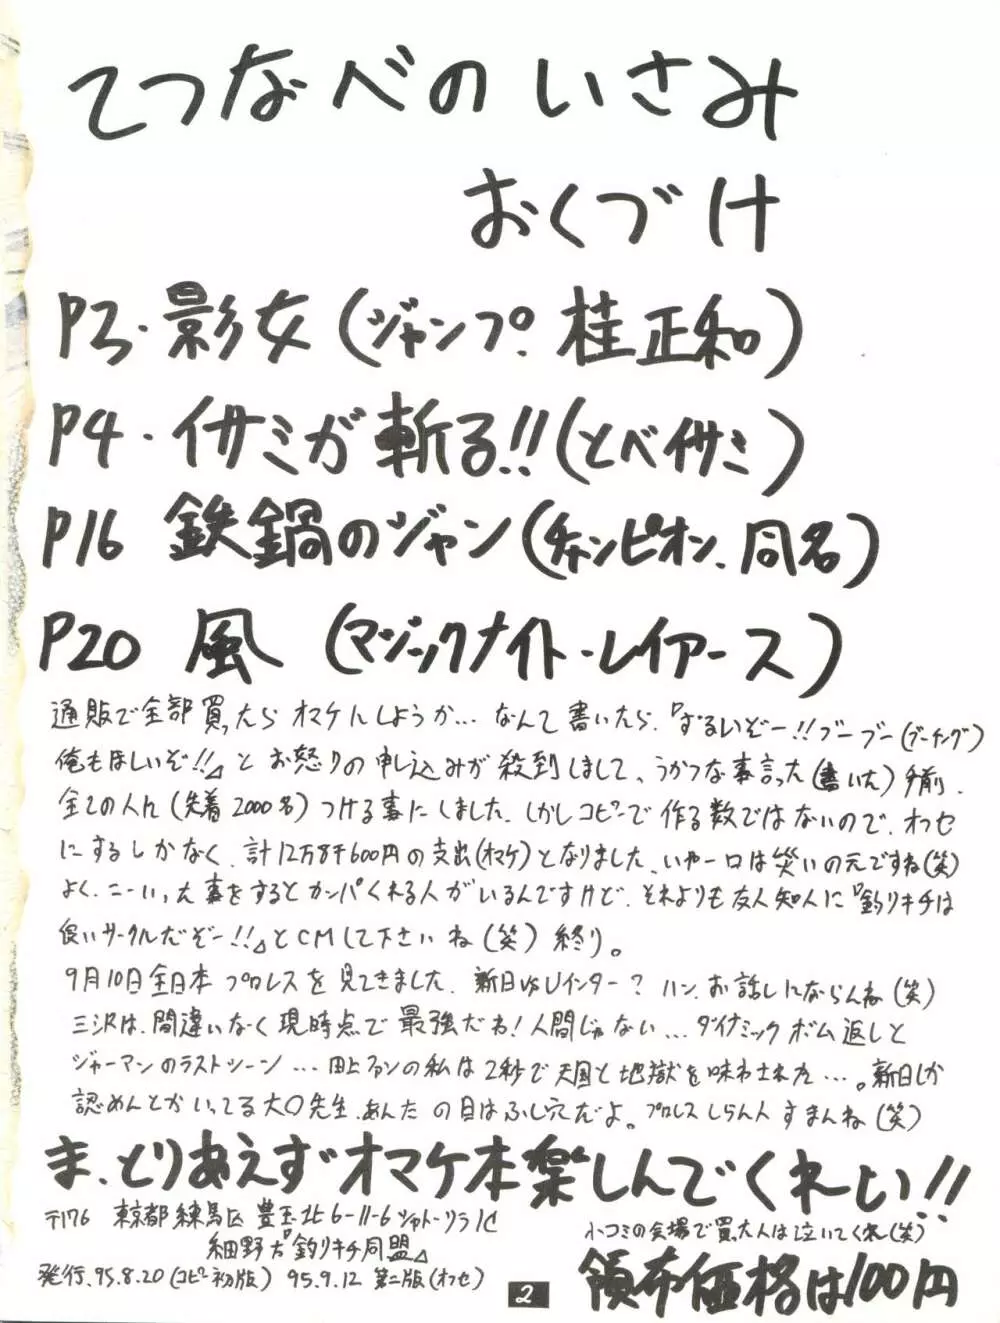 てつなべのいさみ
おくづけ
P3・影女(ジャンプ.桂正和)
P4・イサミが斬る!!(とべイサミ)
P16 鉄鍋のジャン(チャンピオン.同名)
P20 風(マジックナイト・レイアース)
通販で全部買ったらオマケにしようか…なんて書いたら、『ずるいぞー!!ブーブー(ブーイング)
俺もほしいぞ!!』とお怒りの申し込みが殺到しまして、うかつな事言った(書いた)手前、
全ての人に(先着2000名)つける事にしました。しかしコピーで作る数ではないので、オフセ
にするしかなく、計12万8千600円の支出(オマケ)となりました。いやー口は災いの元ですね(笑)
よく、こーいった事をするとカンパくれる人がいるんですけど、それよりも友人知人に『釣りキチは
良いサークルだぞー!!』とCMして下さいね(笑)終り。
9月10日全日本プロレスを見てきました。新日VSUインター?ハン、お話しにならんね(笑)
三沢は、間違いなく現時点で最強だね!人間じゃない…ダイナミックボム返しと
ジャーマンのラストシーン…田上ファンの私は2秒で天国と地獄を味わされた…。新日しか
認めんとかいってる大〇先生、あんたの目はふし穴だよ。プロレスしらん人すまんね(笑)
ま、とりあえずオマケ本楽しんでくれーい!!
〒176 東京都練馬区豊玉北6-11-6シャトーソラ1C
細野方『釣りキチ同盟』
発行.95.8.20(コピー初版)95.9.12第二版(オフセ)
小コミの会場で買った人は泣いてくれ(笑)
領布価格は100円
2